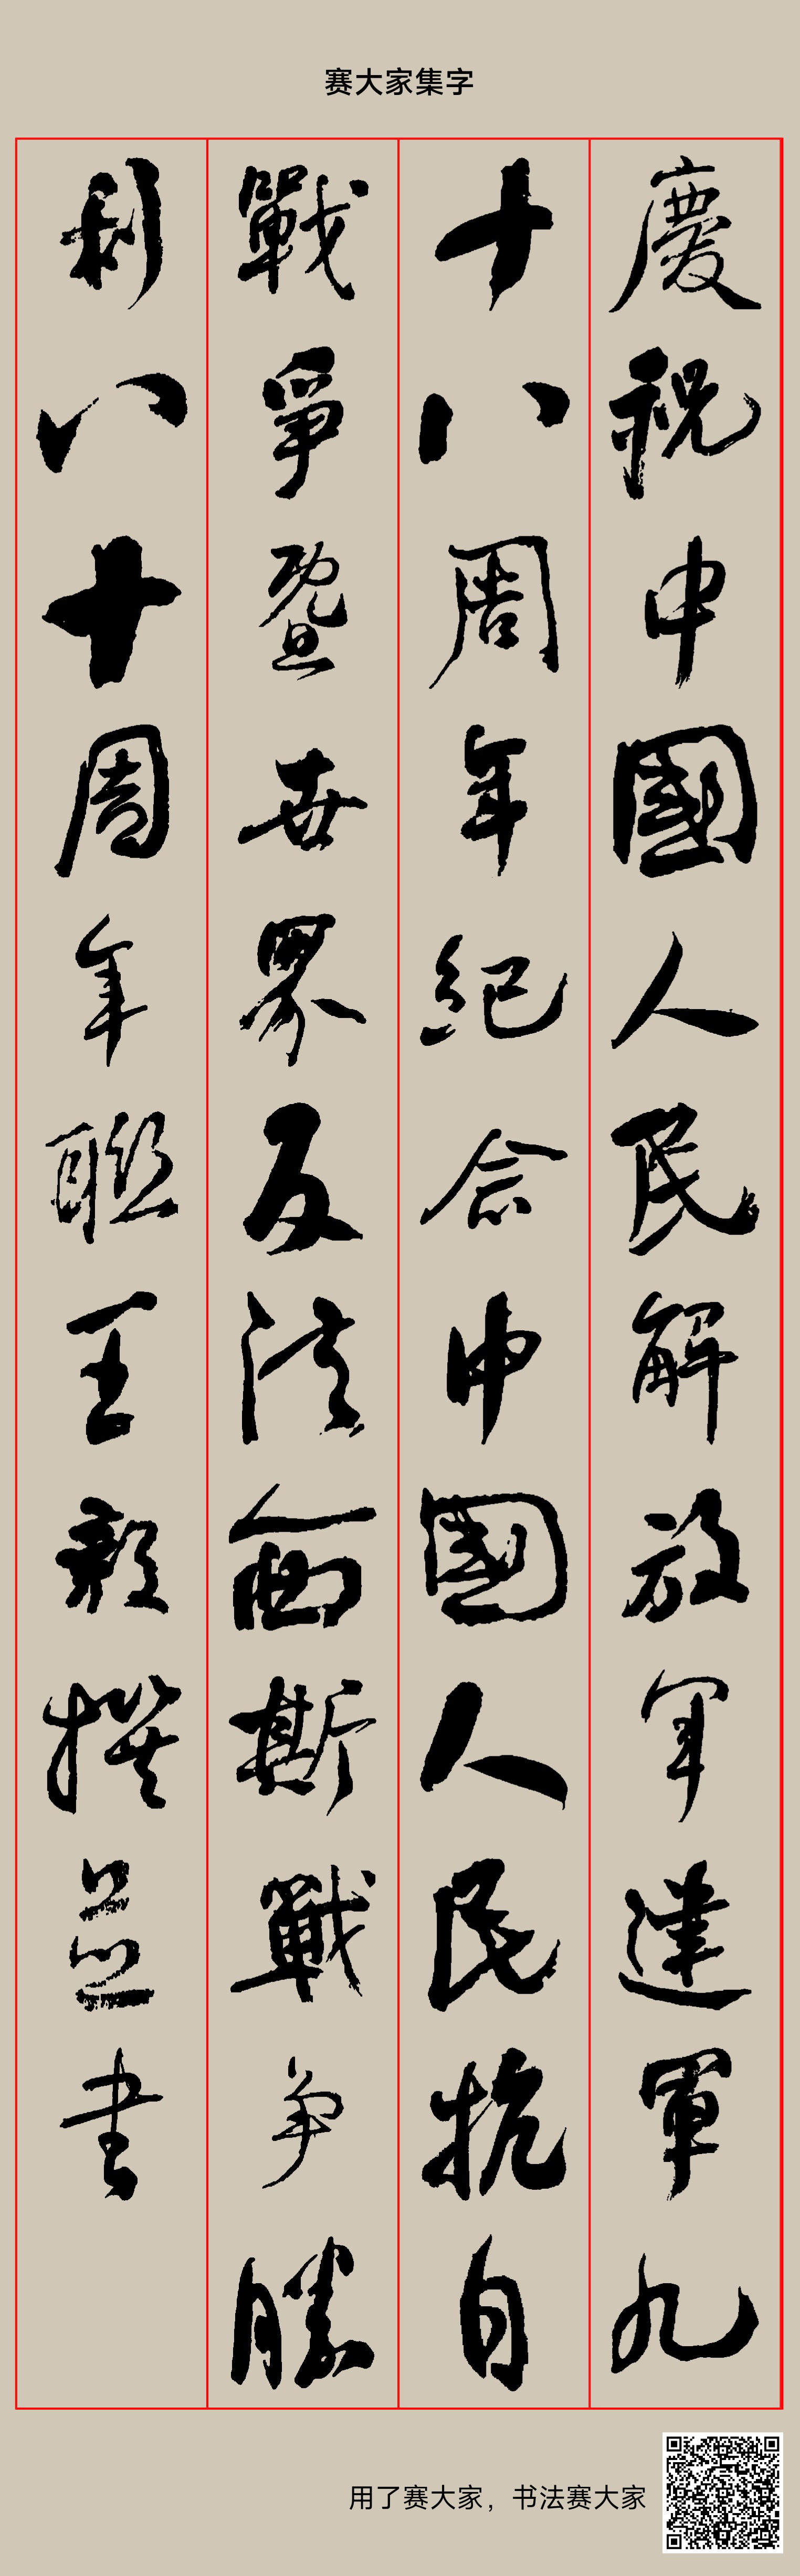 赛大家集字
慶祝中國人民解放军建軍九
十八周年紀念中國人民抗日
戰爭暨世界反法西斯戰争勝
利八十周年聯王毅撰並书
用了赛大家，书法赛大家